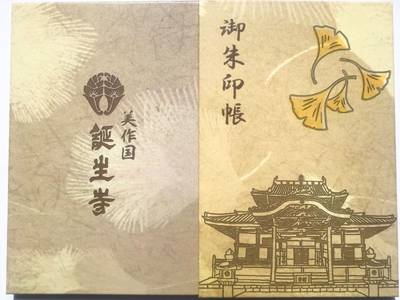 御朱印帳
美作国
誕生寺